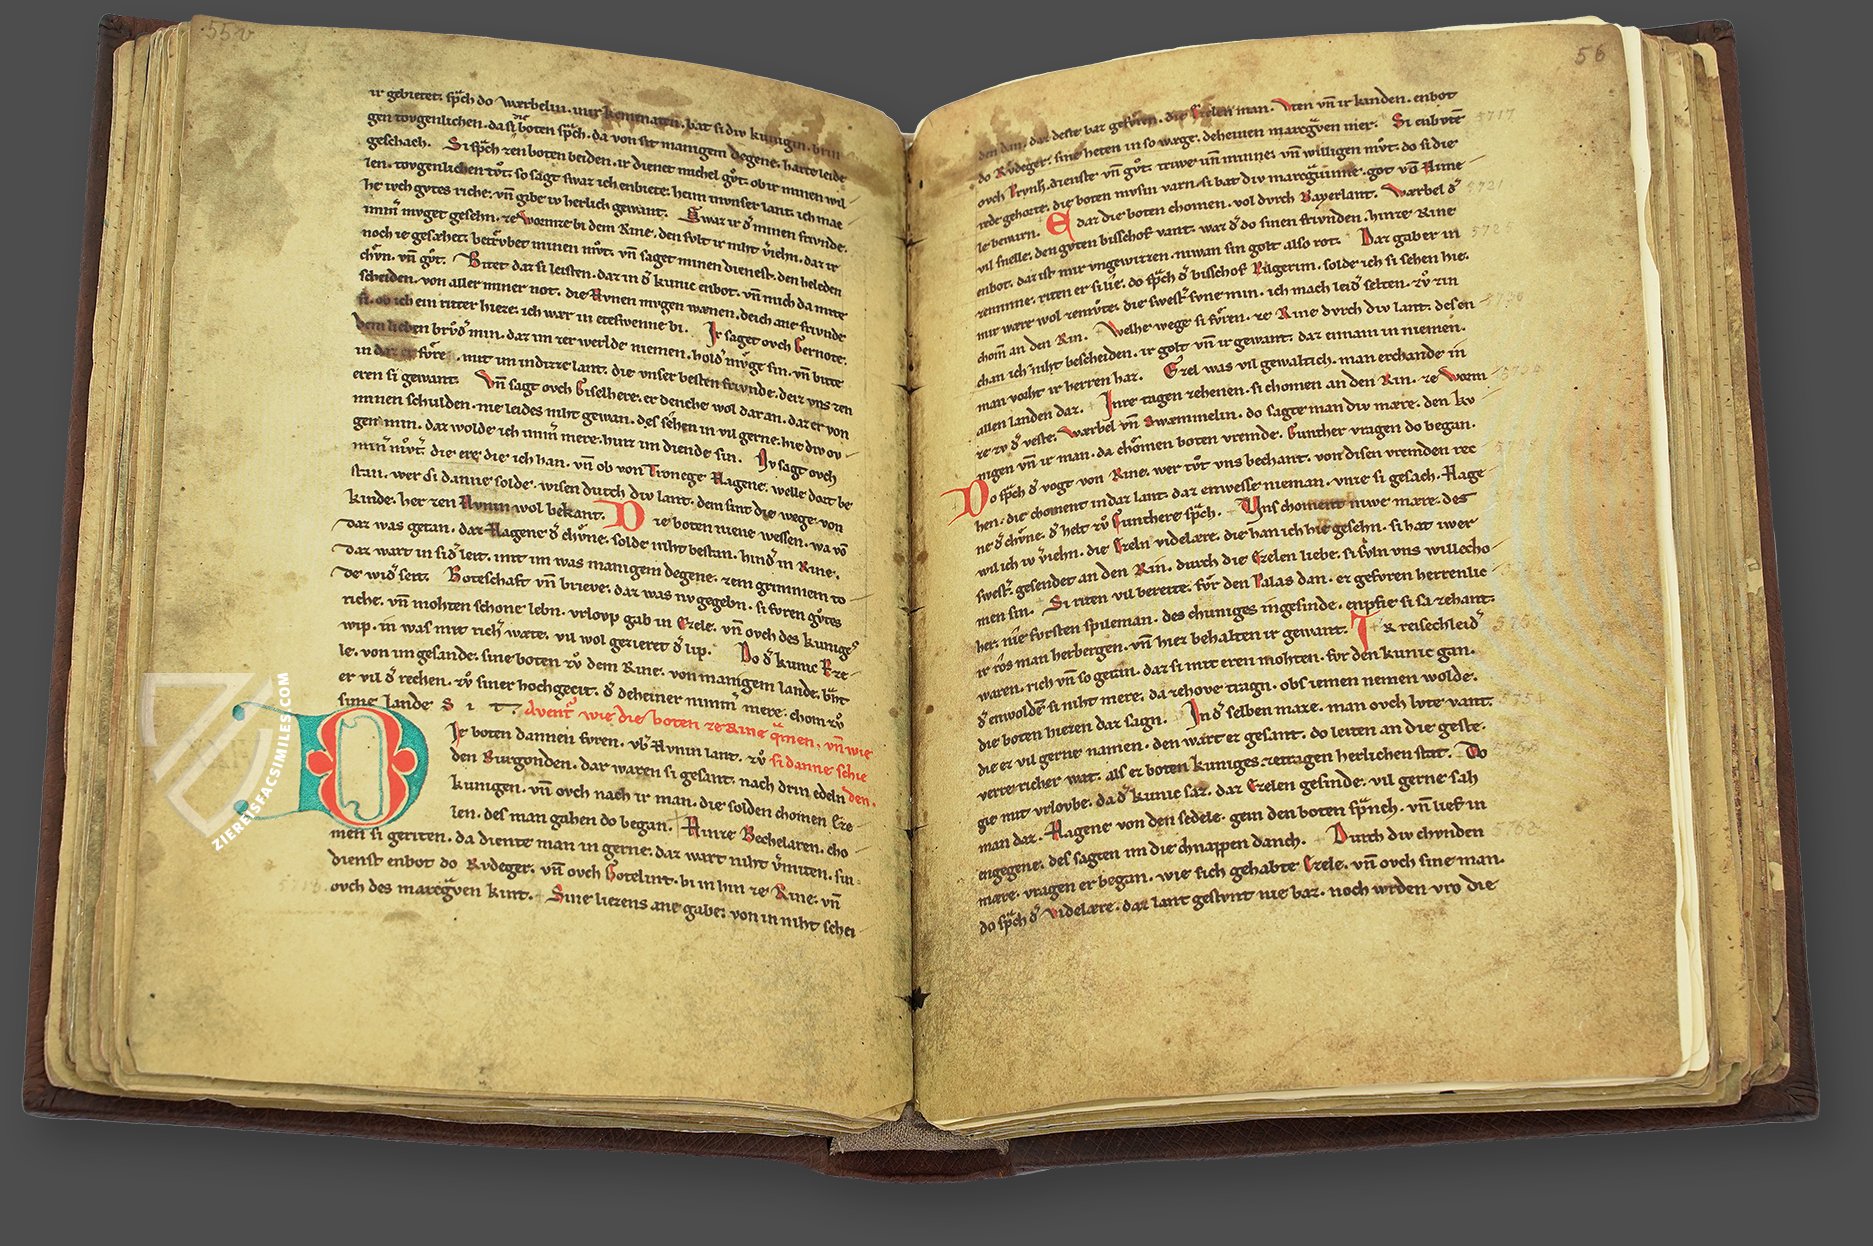 55v
ir gebietet. sp̄ch do Wærbelin. mir kemenaten. bat si div kunigin. brin
gen tovgenlichen. da si ir boten sp̄ch. da von sit manigem degene. harte leide
geschach. Si sp̄ch zen boten beiden. ir dienet michel gv̊t. ob ir minen wil
len. tovgenlichen tv̊t. so sagt swaz ich enbiete. heim in vnser lant. ich mac
he ivch gvtes riche. vn̄ gibe iv herlich gewant. Swaz ir d᷑ minen frivnde.
imm̄ mvget gesehn. ze Wormze bi dem Rine. den svlt ir niht v᷑iehn. daz ir
noch ie gesæhet. betrv̊bet minen mv̊t. vn̄ saget minen dienest. den heleden
chv̊n. vn̄ gv̊t. Bitet daz si leisten. daz in d᷑ kunic enbot. vn̄ mich da mite
scheiden. von aller miner not. die Hvnen mvgen wænen. deich ane frivnde
si. ob ich ein ritter hieze. ich wær in eteswenne bi. Ir saget ovch Gernote.
dem lieben brv̊d᷑ min. daz im zer werlde niemen. hold᷑ mv̊ge sin. vn̄ bitte
in daz er fv̊re. mit im in dizze lant. die vnser besten frivnde. deiz vns zen
eren si gewant. Vn̄ sagt ovch Giselhere. er denche wol daran. daz er von
minen schulden. nie leides niht gewan. des sehen in vil gerne. hie div ov
gen min. daz wolde ich imm̄ mere. hinz im diende sin. Iv sagt ovch
min̄ mv̊t᷑. die ere die ich han. vn̄ ob von Tronege Hagene. welle dort be
stan. wer si danne solde. wisen durch div lant. dem sint die wege. von
kinde. her zen Hvnin wol bekant. Die boten niene wessen. wa vō
daz was getan. daz Hagene d᷑ chv̊ne. solde niht bestan. hind᷑ in Rine.
daz wart in sid᷑ leit. mit im was manigem degene. zem grimmem to
de wid᷑ seit. Boteschaft vn̄ brieve. daz was nv gegebn. si fvren gv̊tes
riche. vn̄ mohten schone lebn. vrlovp gab in Ezele. vn̄ ovch des kuniges
wip. in was mit rich᷑ wæte. vil wol gezieret d᷑ lip. Do d᷑ kunic Eze
le. von im gesande. sine boten zv̊ dem Rine. von manigem lande. bāt
er vil d᷑ rechen. zv̊ siner hochgezit. d᷑ deheiner nimm̄ mere. chom zv̊
sime lande S i t. Avent᷑ wie die boten ze Rine q̄men. vn̄ wie
Ie boten dannen fvren. vb᷑ Hvnin lant. zv̊ si danne schie
den Burgonden. daz waren si gesant. nach drin edeln den.
kunigen. vn̄ ovch nach ir man. die solden chomen Eze
len. des man gahen do began. Hinze Bechelaren. cho
men si geriten. da diente man in gerne. daz wart niht v᷑miten. sin
dienst enbot do Rvdeger. vn̄ ovch Gotelint. bi in hin ze Rine. vn̄
ovch des marcgv̄en kint. Sine liezens ane gabe. von in niht schei
56
den dan. daz deste baz gefv̊ren. die Ezelen man. Vten vn̄ ir kinden. enbot
do Rvdeger. sine heten in so wæge. deheinen marcgv̄en mer. Si enbvtē 5717
ovch Prvnh. dienste vn̄ gv̊t. triwe vn̄ minne. vn̄ willigen mv̊t. do si die
rede gehorte. die boten mvsin varn. si bat div marcgv̄inne. got vō Hime
le bewarn. E daz die boten chomen. vol durch Bayerlant. Wærbel d᷑ 5721
vil snelle. den gvten bisschof vant. waz d᷑ do sinen frivnden. hinze Rine
enbot. daz ist mir vngewizzen. niwan sin golt also rot. Daz gab er in 5725
zeminne. riten er si lie. do sp̄ch d᷑ bisschof Pilgerim. solde ich si sehen hie.
mir wære wol zemv̊te. die swest᷑ svne min. ich mach leid᷑ selten. zv̊ zin
chom̄ an den Rin. Welhe wege si fv̊ren. ze Rine durch div lant. des en 5730
chan ich niht bescheiden. ir golt vn̄ ir gewant. daz ennam in niemen.
man vorht ir herren haz. Ezel was vil gewaltich. man erchande in
allen landen daz. Inre tagen zehenen. si chomen an den Rin. ze Worm
ze zv̊ d᷑ veste. Wærbel vn̄ Swæmmelin. do sagte man div mære. den kv
nigen vn̄ ir man. da chōmen boten vremde. Gunther vragen do began.
Do sp̄ch d᷑ vogt von Rine. wer tv̊t vns bechant. von disen vremden rec
hen. die choment in daz lant. daz enwesse nieman. vnze si gesach. Hage
ne d᷑ chv̊ne. d᷑ helt zv̊ Gunthere sp̄ch. Vns choment niwe mære. des
wil ich iv v᷑iehn. die Ezeln videlære. die han ich hie gesehn. si hat iwer
swest᷑. gesendet an den Rin. durch die Ezelen liebe. si sv̊ln vns willecho
men sin. Si riten vil bereite. fv̊r den Palas dan. ez gefvren herrenlic
her. nie fvrsten spileman. des chuniges ingesinde. enpfie si sa zehant.
ir ros man herbergen. vn̄ hiez behalten ir gewant. Ir reisechleid᷑
waren. rich vn̄ so getan. daz si mit eren mohten. fvr den kunic gan.
d᷑ enwolden si niht mere. da zehove tragn. obs iemen nemen wolde.
die boten hiezen daz sagn. In d᷑ selben maze. man ovch lvte vant.
die ez vil gerne namen. den wart ez gesant. do leiten an die geste.
verre richer wat. als ez boten kuniges zetragen herlichen stat. Do
gie mit vrlovbe. da d᷑ kunic saz. daz Ezelen gesinde. vil gerne sah
man daz. Hagene von den sedele. gein den boten sp̄nch. vn̄ lief in
engegene. des sagten im die chnappen danch. Durch div chvnden
mære. vragen er began. wie sich gehabte Ezele. vn̄ ovch sine man.
do sp̄ch d᷑ videlære. daz lant gestvnt nie baz. noch wrden vro die
ZIEREISFACSIMILES.COM